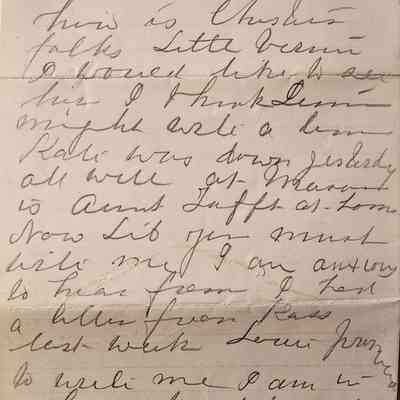 how is
folks Little
I would like to see
him I think
might write a line
Kate was down yesterday
all well at
is Aunt Tafft at home
Now Lib you must
write me I am anxious
to hear from I had
a letter from
last week
to write me I am in